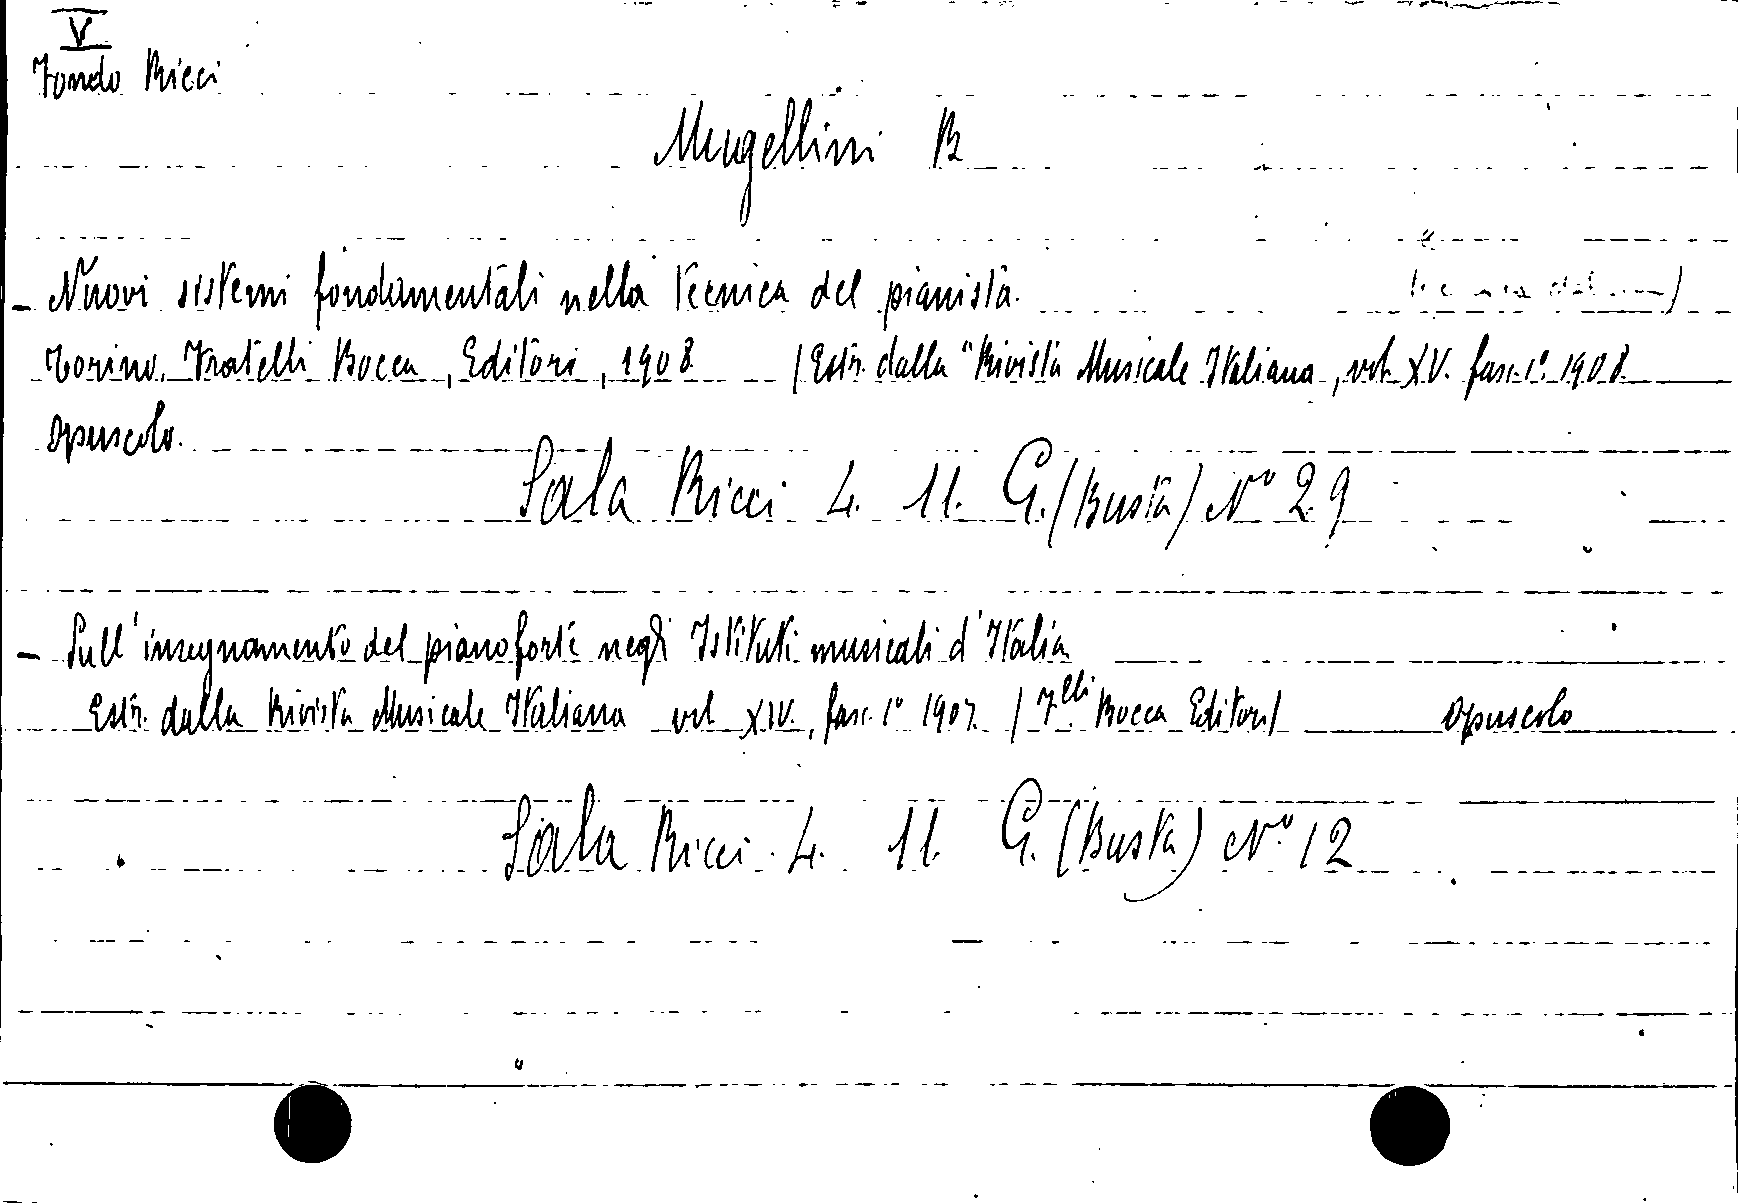 V
Fondo Ricci
Mugellini B
- Nuovi sistemi fondamentali nella tecnica del pianista.
Torino, Fratelli Bocca, Editori, 1908 (Estr. dalla "Rivista Musicale Italiana, vol. XV. fasc. 1° 1908
opuscolo.
Sala Ricci L. 11. G. (Busta) N° 29
- Sull'insegnamento del pianoforte negli Istituti musicali d'Italia
Estr. dalla Rivista Musicale Italiana vol XIV, fasc. 1° 1907. (F.lli Bocca Editori) opuscolo
Sala Ricci L. 11. G. (Busta) N° 12